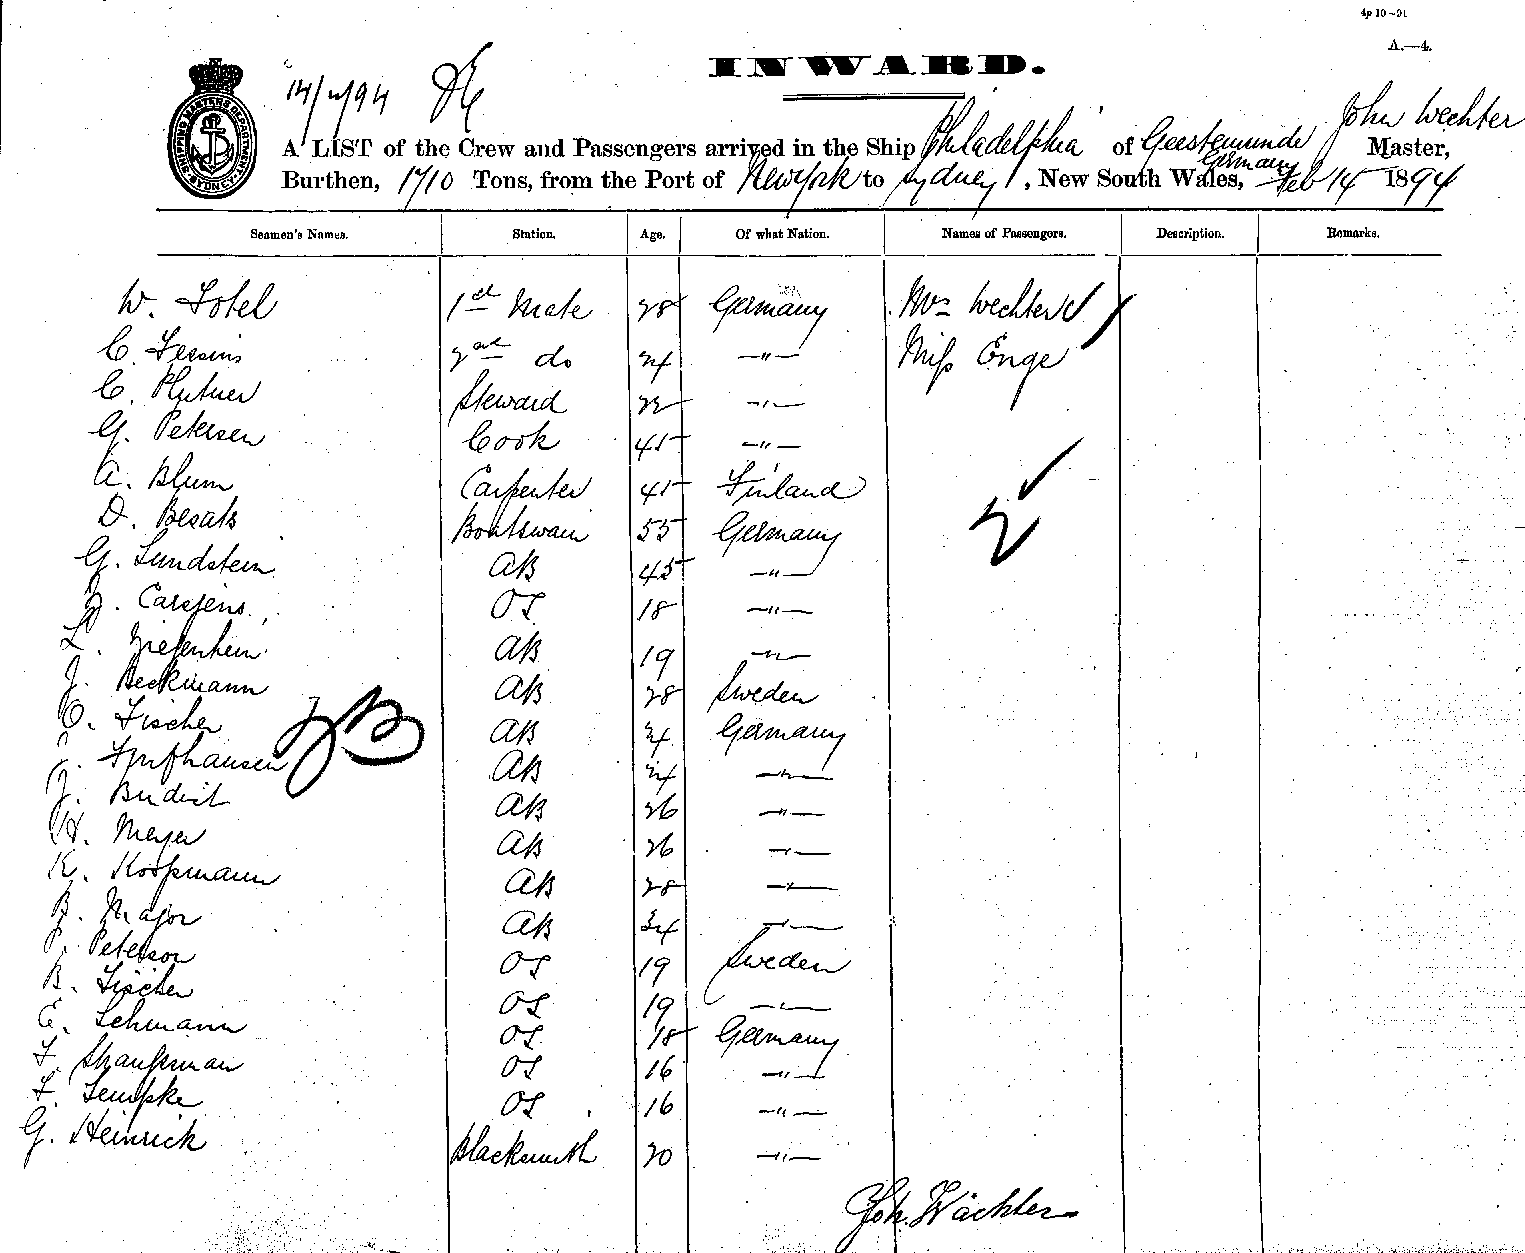 4p 10-91
A.—4.
INWARD.
14/2/94
SHIPPING MASTERS DEPARTMENT SYDNEY
John Wechter
A LIST of the Crew and Passengers arrived in the Ship Philadelphia of Geestemunde Master,
Germany
Burthen, 1710 Tons, from the Port of New York to Sydney, New South Wales, Feb 14 1894
Seamen's Names. Station. Age. Of what Nation. Names of Passengers. Description. Remarks.
W. 1st Mate 28 Germany Mrs Wechter
C. 2nd do 24 —"— Miss Enge
C. Steward 22 —"—
G. Petersen Cook 45 —"—
A. Blum Carpenter 45 Finland
D. Besats Boatswain 55 Germany
2
G. Lundstein AB 45 —"—
J. Carsjens OS 18 —"—
L. AB 19 —"—
J. Beckmann AB 28 Sweden
O. Fischer AB 24 Germany
AB 24 —"—
J. AB 26 —"—
H. Meyer AB 26 —"—
K. Koopmann AB 28 —"—
J. Major AB 34 —"—
P. Peterson OS 19 Sweden
B. Fischer OS 19 —"—
E. Lehmann OS 18 Germany
F. OS 16 —"—
F. Lempke OS 16 —"—
G. Heinrick Blacksmith 20 —"—
Joh. Wächter